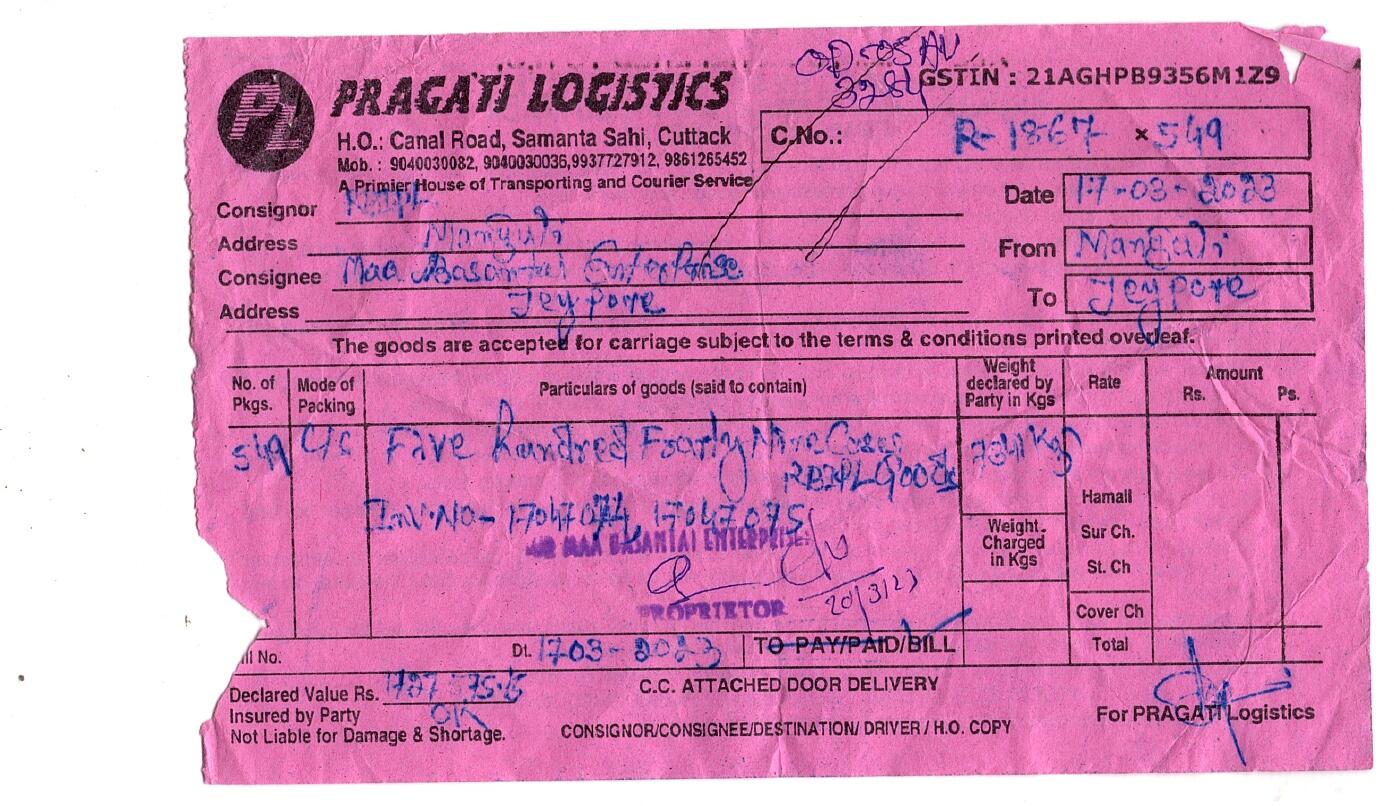 PL PRAGATI LOGISTICS
GSTIN : 21AGHPB9356M1Z9
H.O.: Canal Road, Samanta Sahi, Cuttack
Mob. : 9040030082, 9040030036,9937727912, 9861265452
A Primier House of Transporting and Courier Service
C.No.: R-1867 × 549
Date 17-03-2023
Consignor
Address Manguli
From Manguli
Consignee Maa Basantai Enterprise
Address Jeypore
To Jeypore
The goods are accepted for carriage subject to the terms & conditions printed overleaf.
No. of Pkgs. Mode of Packing Particulars of goods (said to contain) Weight declared by Party in Kgs Rate Amount Rs. Ps.
549 C/s Five hundred Fourty Nine Cases
Goods
Hamali
INV.NO- 17047074, 17047075
Weight Charged in Kgs
Sur Ch.
MAA BASANTAI ENTERPRISE
St. Ch
20/3/23
PROPRIETOR
Cover Ch
Dt. 17-03-2023 TO PAY/PAID/BILL Total
No.
Declared Value Rs.
C.C. ATTACHED DOOR DELIVERY
Insured by Party OK
For PRAGATI Logistics
Not Liable for Damage & Shortage.
CONSIGNOR/CONSIGNEE/DESTINATION/ DRIVER / H.O. COPY